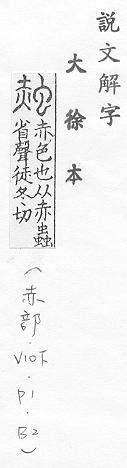 說文解字
大徐本
赤色也从赤蟲
省聲徒冬切
(赤部．V10下．P1．B2)